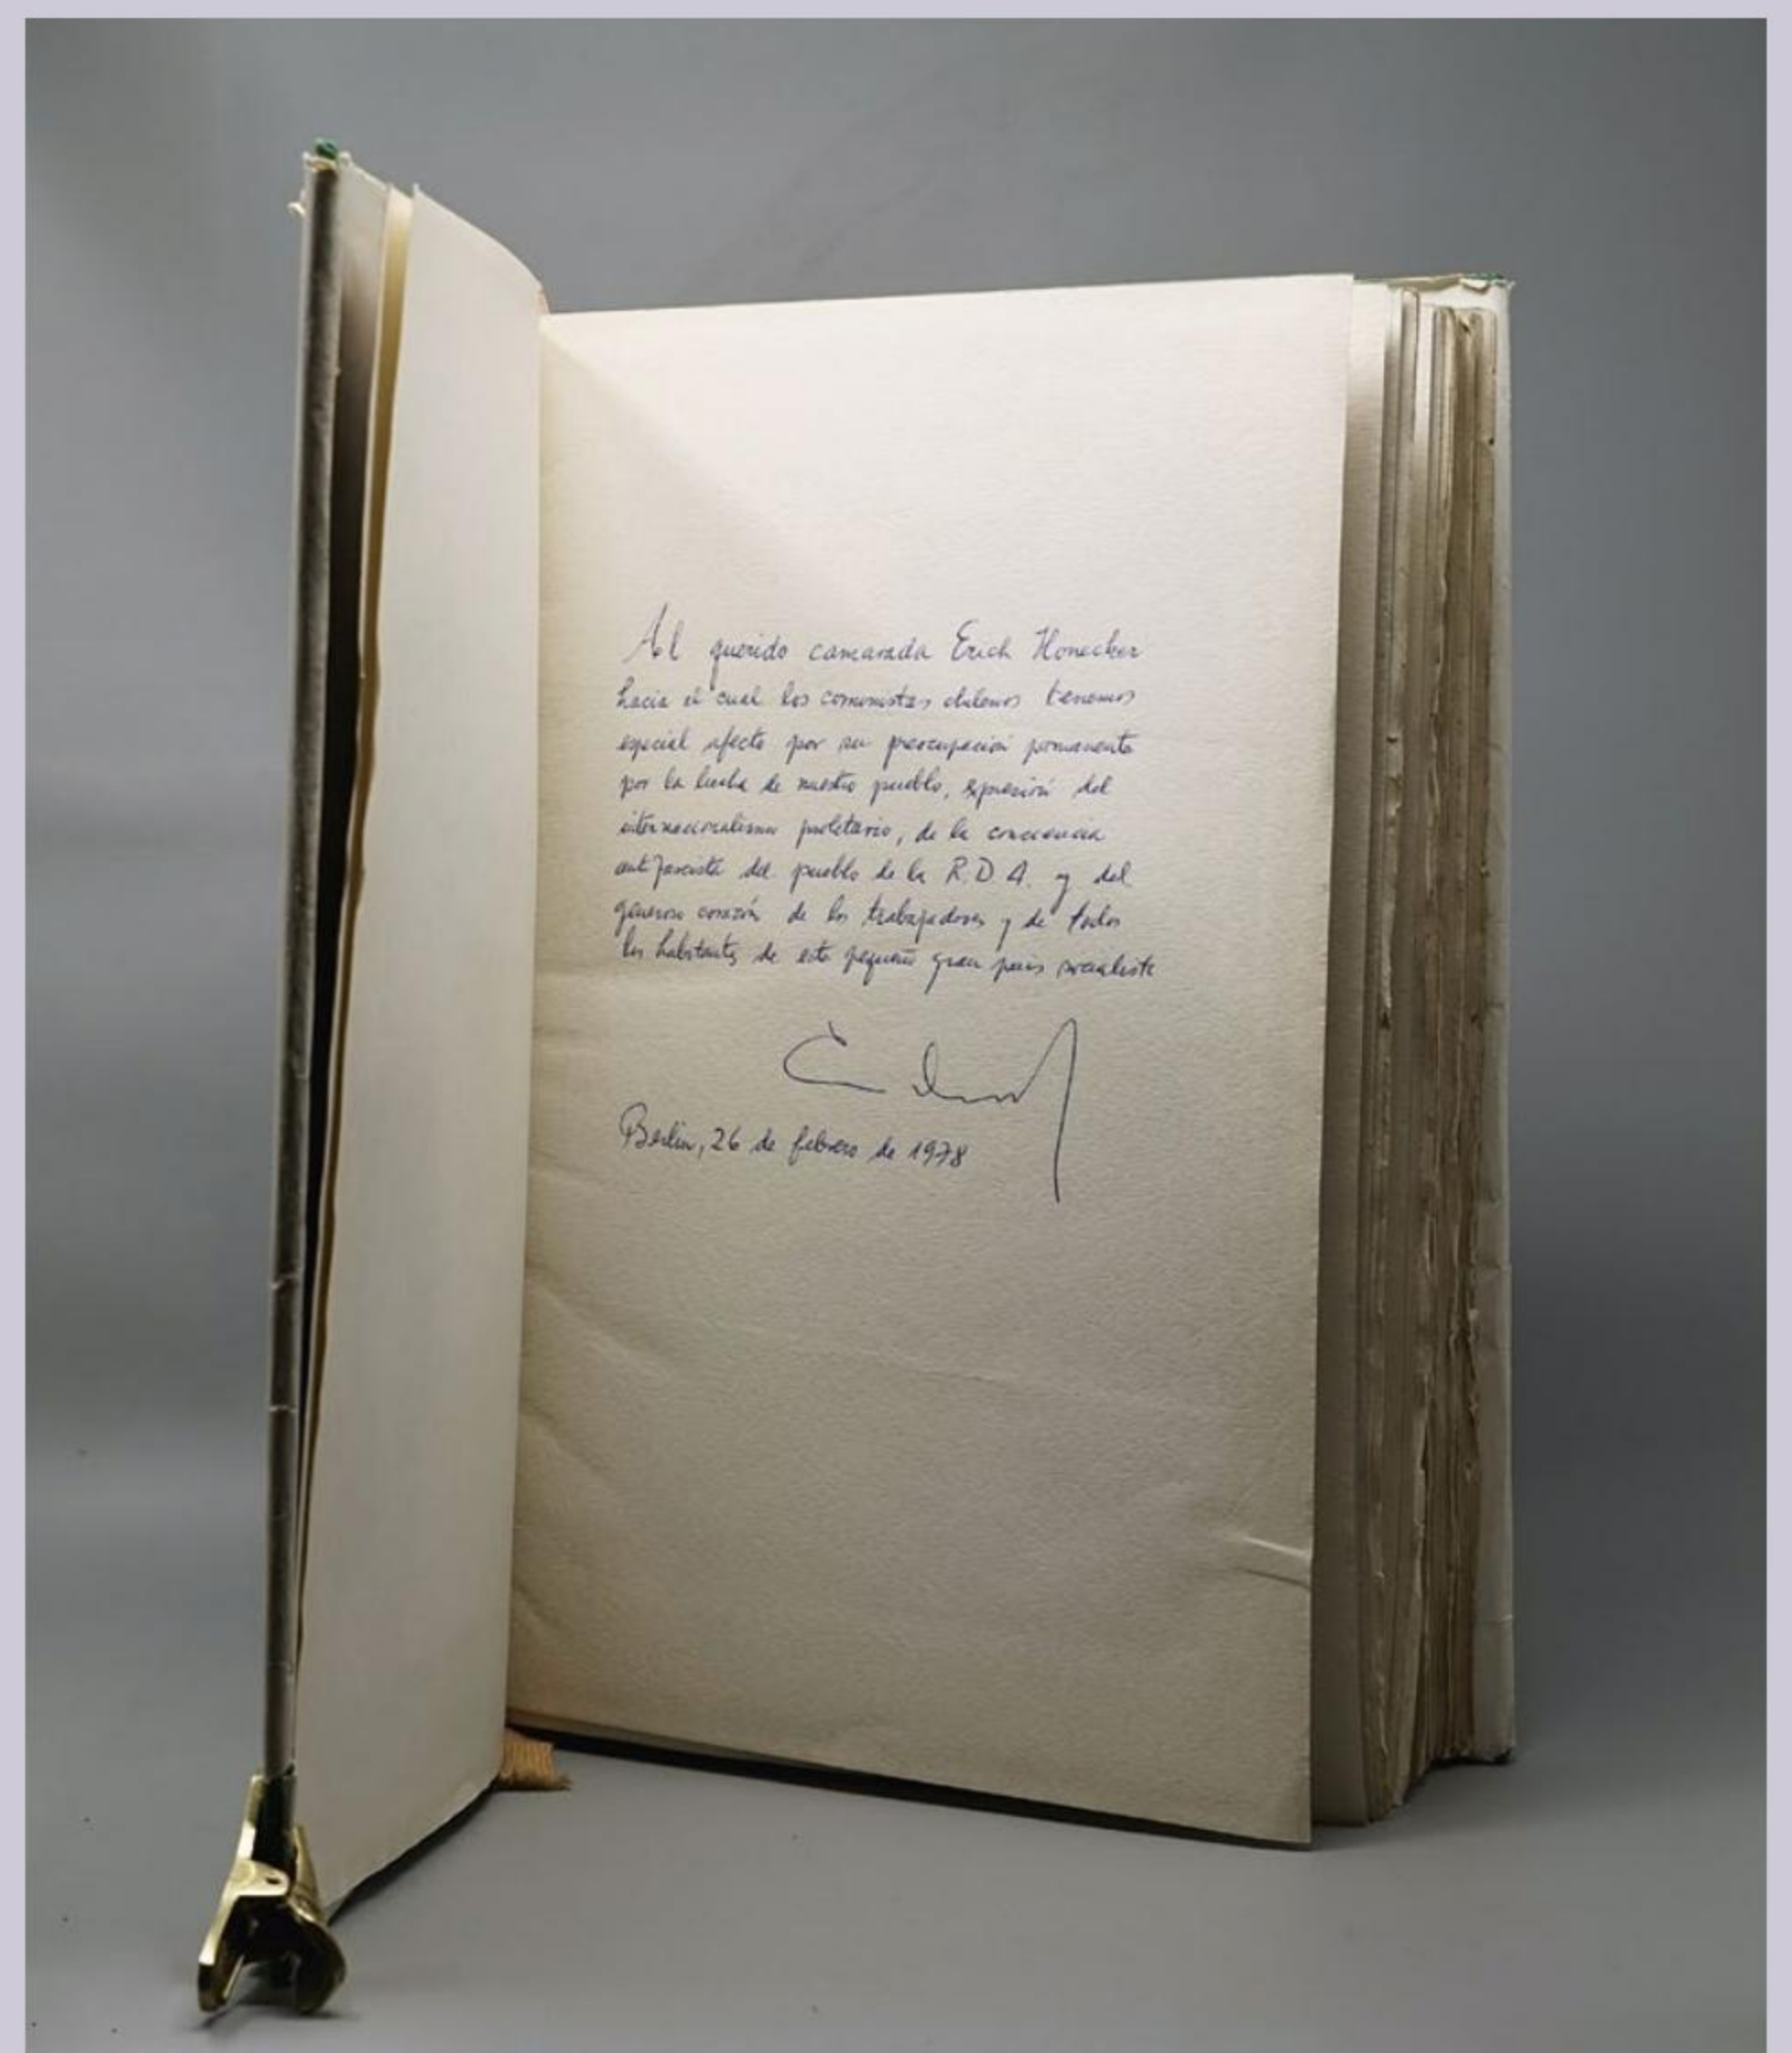 Al querido camarada Erich Honecker
hacia el cual los comunistas chilenos tenemos
especial afecto por su preocupación permanente
por la lucha de nuestro pueblo, expresión del
internacionalismo proletario, de la conciencia
antifascista del pueblo de la R.D.A. y del
generoso corazón de los trabajadores y de todos
los habitantes de este pequeño gran país socialista
Berlin, 26 de febrero de 1978